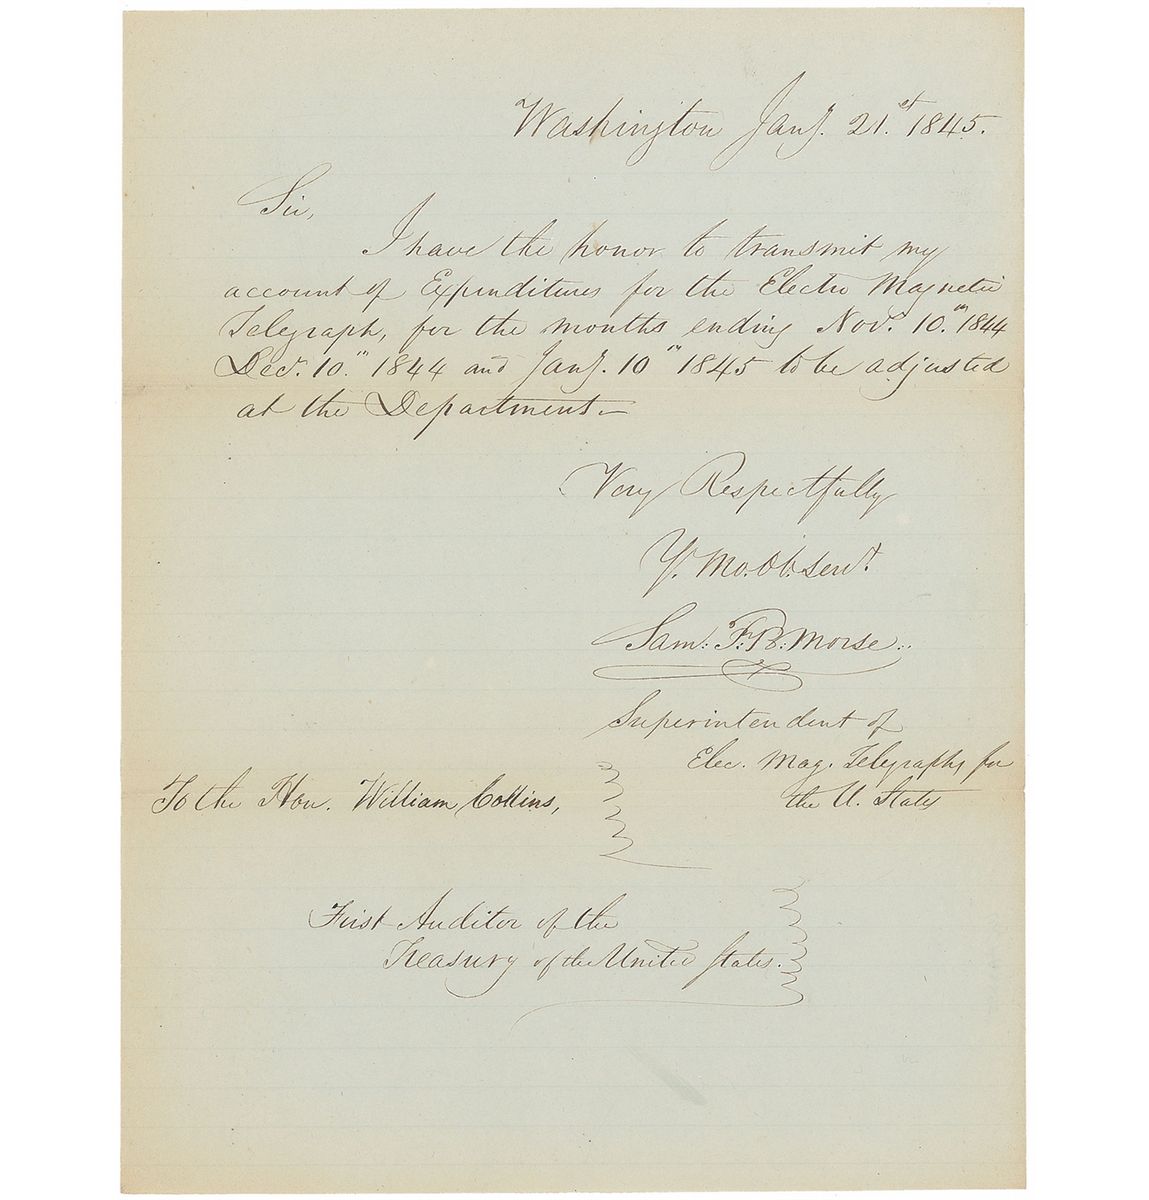 Washington Jany. 21.st 1845.
Sir,
I have the honor to transmit my
account of Expenditures for the Electro Magnetic
Telegraph, for the months ending Novr. 10.th 1844
Decr. 10.th 1844 and Jany. 10th 1845 to be adjusted
at the Department—
Very Respectfully
Yr. Mo. Ob. Servt.
Sam: F: B: Morse..
Superintendent of
Elec. Mag. Telegraphs, for
the U. States
To the Hon. William Collins,
First Auditor of the
Treasury of the United States.